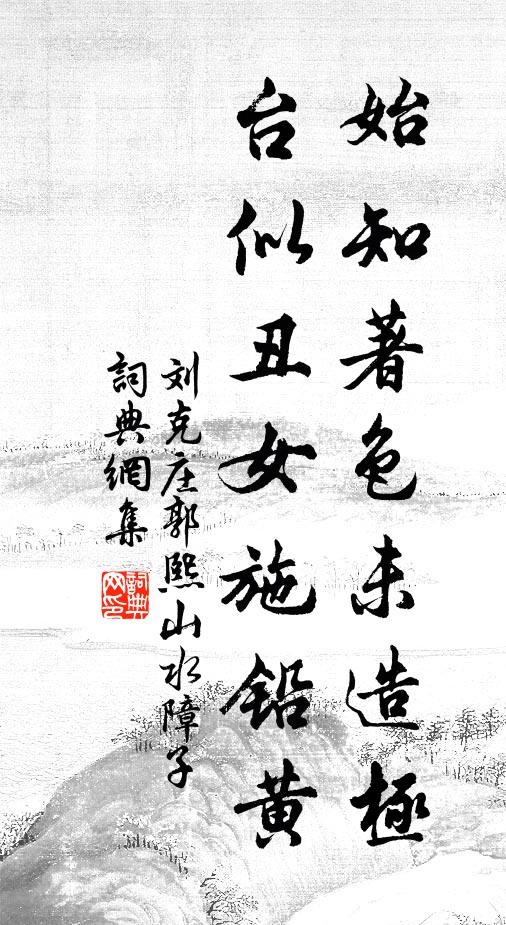 始知著色未造極
台似丑女施鉛黃
刘克庄郭熙山水障子
詞典網集
詞典網印